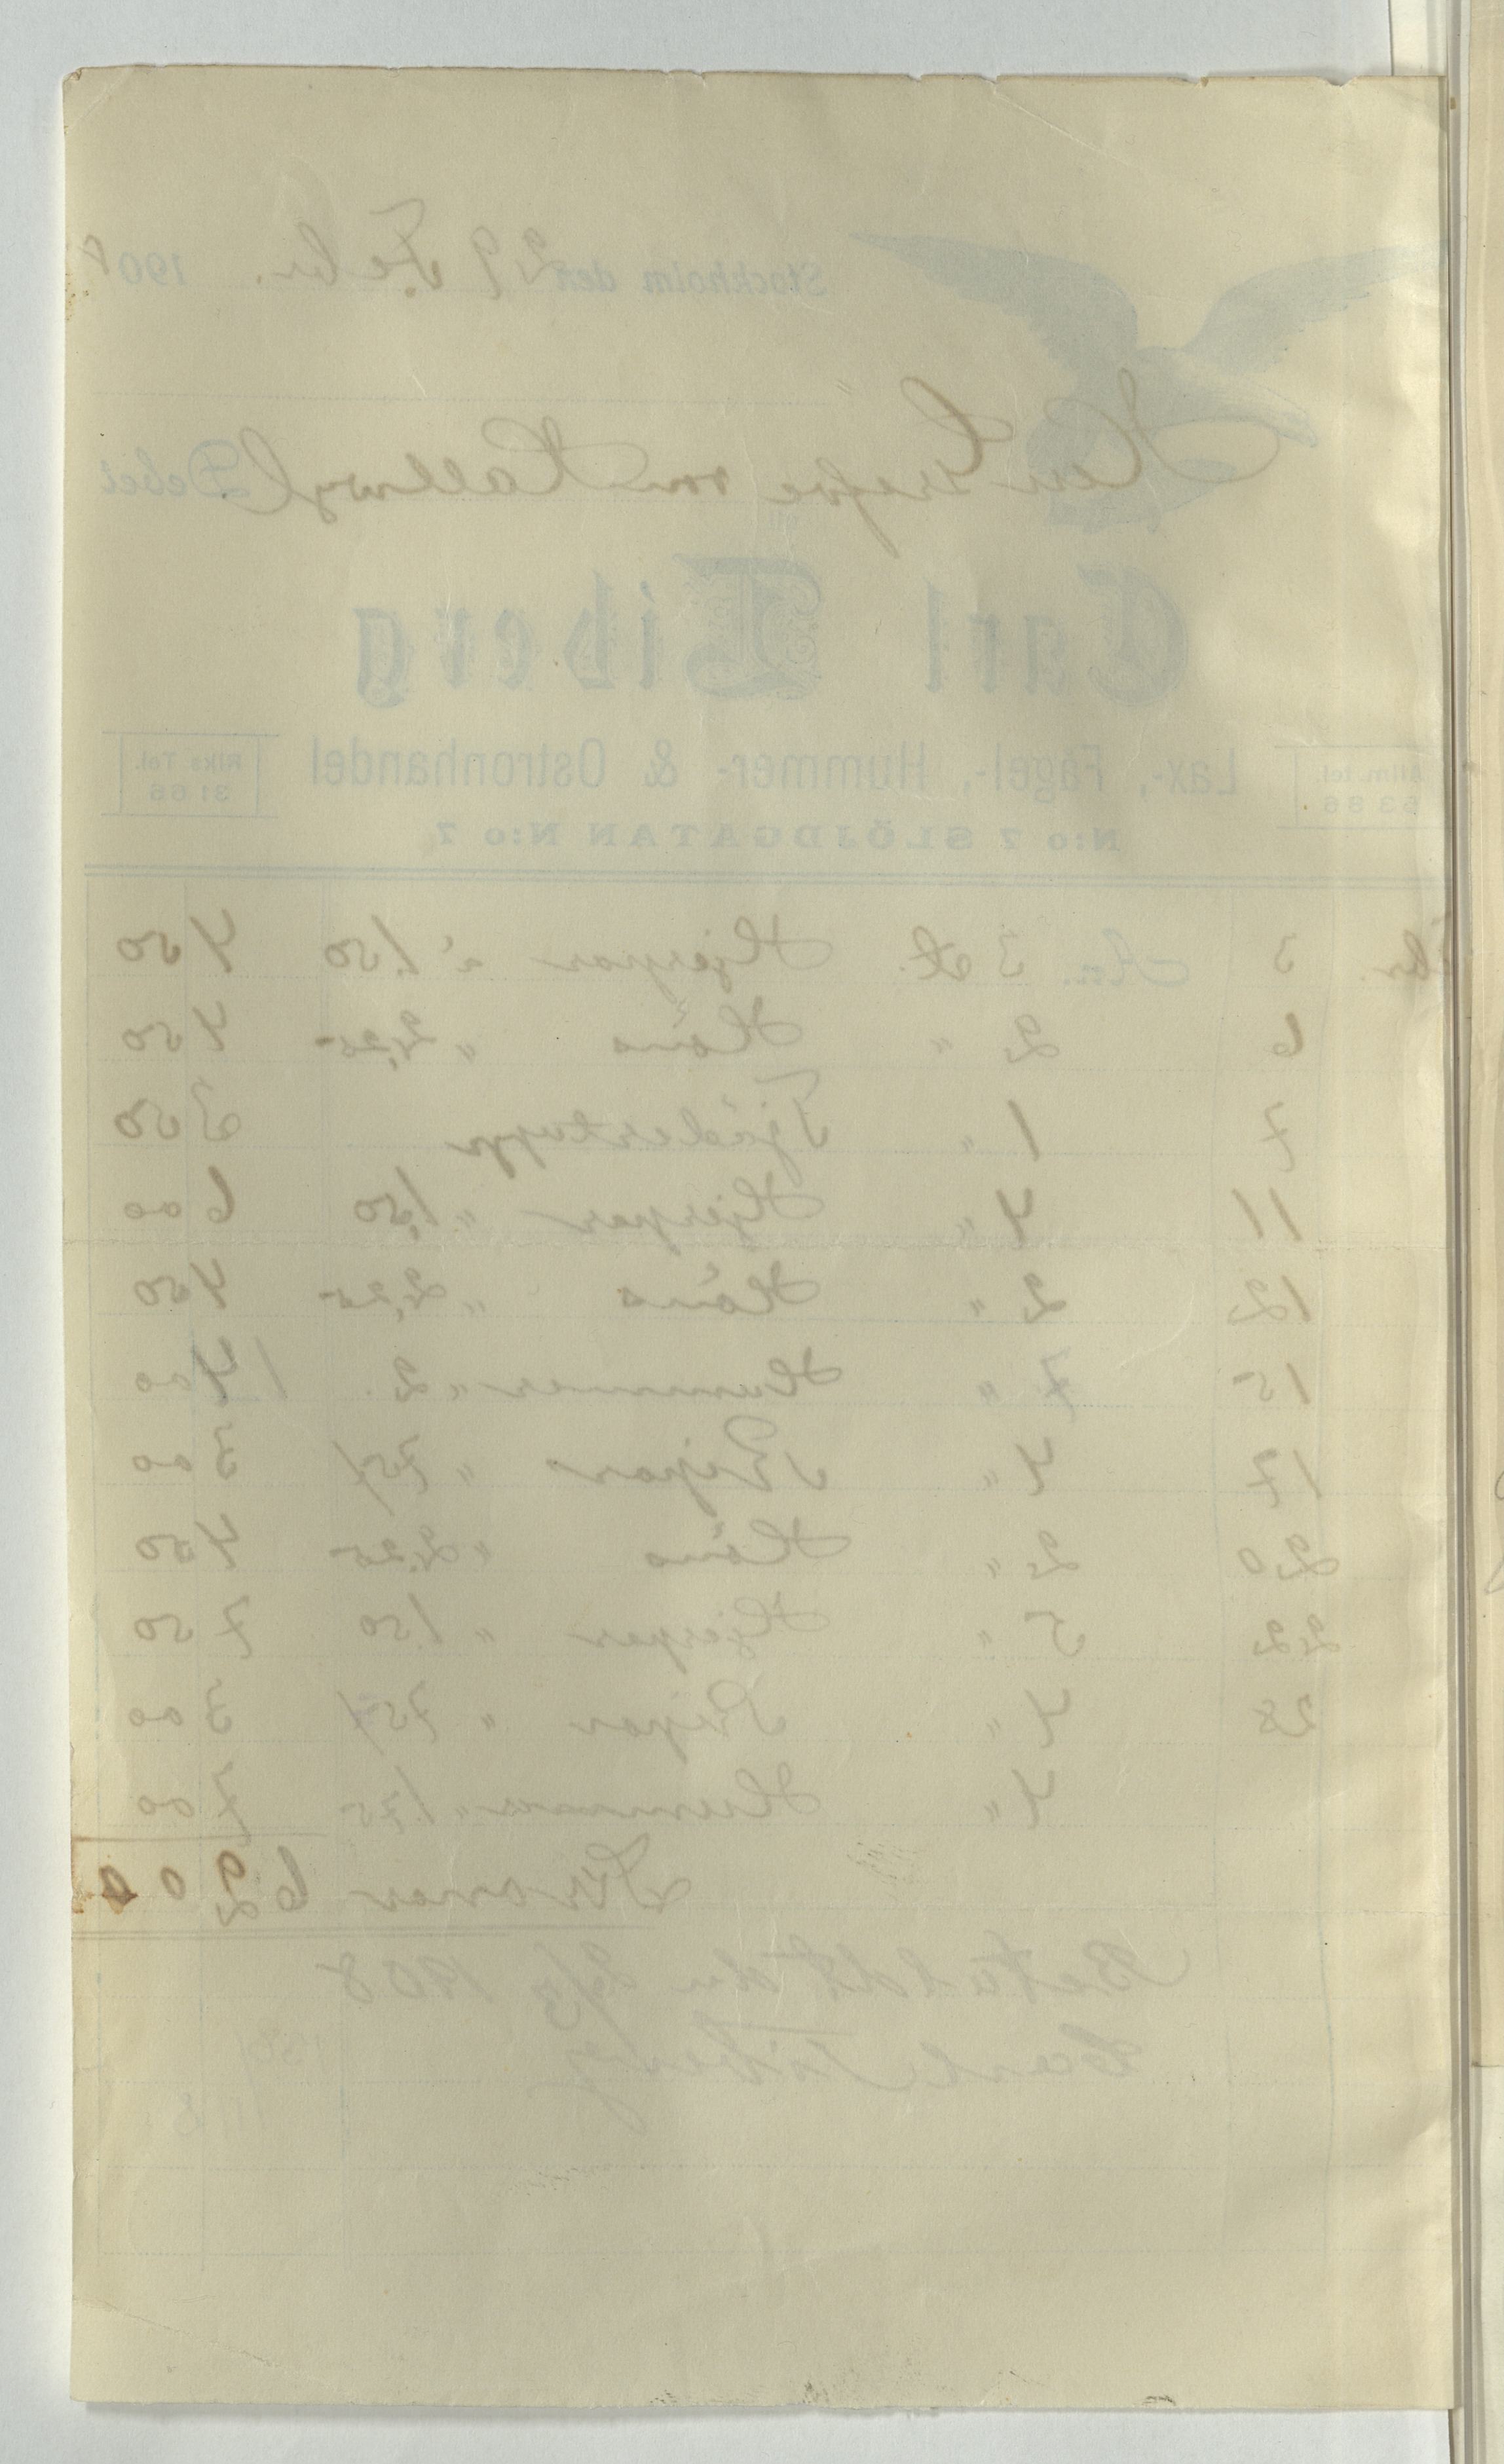 Stockholm den 29 Febr. 1908
Herr Grefve von Hallwyl Debet
Carl Tiberg
Allm. tel. 53 86
Lax-, Fågel-, Hummer- & Ostronhandel
Riks Tel. 31 66
N:o 7 SLÖJDGATAN N:o 7
Febr. 3 An. 3 st. Hjerpar à 1.50 4 50
6 2 " Höns " 2,25 4 50
7 1 " Tjädertupp 3 50
11 4 " Hjerpar " 1,50 6 00
12 2 " Höns " 2,25 4 50
15 7 " Hummer " 2. 14 00
17 4 " Ripor " 75 3 00
20 2 " Höns " 2,25 4 50
22 5 " Hjerpar " 1.50 7 50
28 4 " Ripor " 75 3 00
4 " Hummer " 1.75 7 00
Kronor 62 00
Betaldt den 2/3 1908
Carl Tiberg